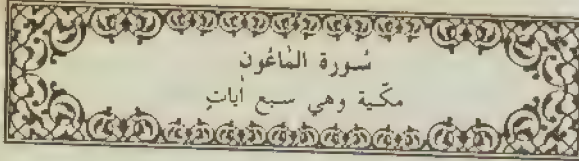 سُورة المَاعُون
مكّية وهي سبع أيَاتٍ